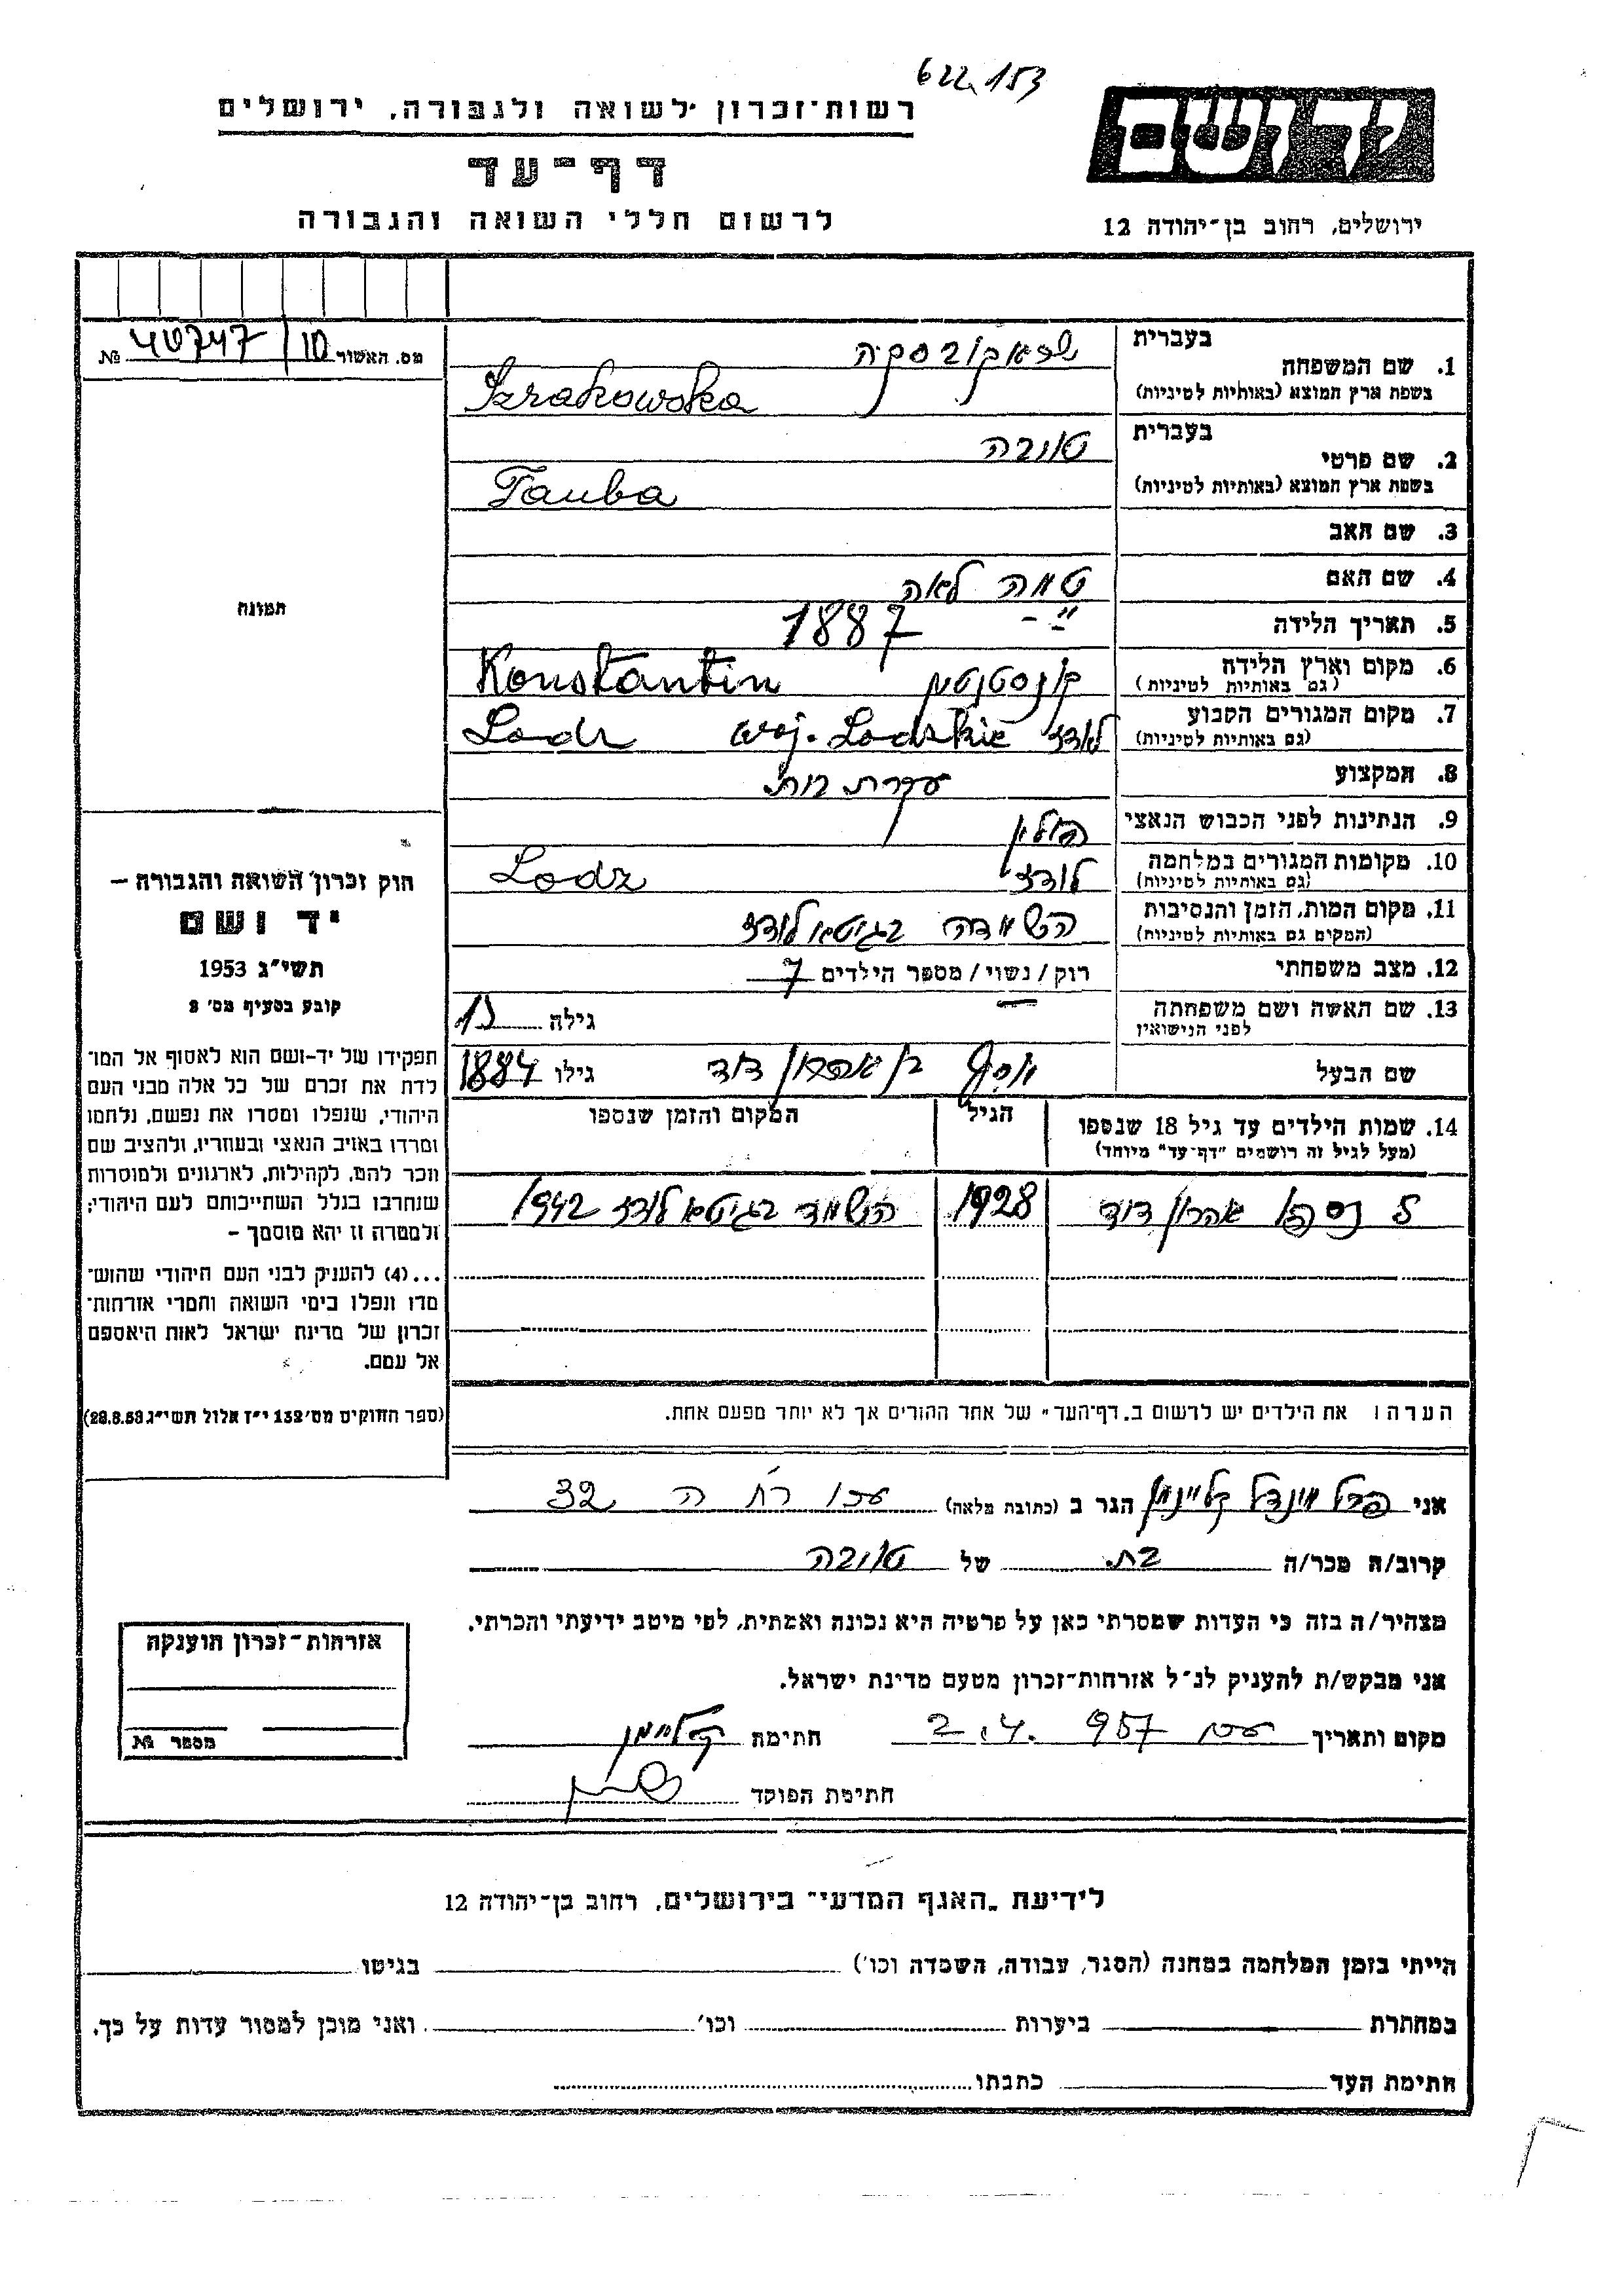 622,153
יד ושם
רשות־זכרון לשואה ולגבורה, ירושלים
דף־עד
לרשום חללי השואה והגבורה
ירושלים, רחוב בן־יהודה 12
מס. האשור 40747/10 №
תמונה
בעברית
1. שם המשפחה
בשפת ארץ המוצא (באותיות לטיניות)
Szrakowska
בעברית טובה
2. שם פרטי
בשפת ארץ המוצא (באותיות לטיניות)
Tauba
3. שם האב
4. שם האם לאה
5. תאריך הלידה 1887
6. מקום וארץ הלידה קונסטנטין Konstantin
(גם באותיות לטיניות)
7. מקום המגורים הקבוע לודז woj. Lodzkie Lodz
(גם באותיות לטיניות)
8. המקצוע עקרת בית
9. הנתינות לפני הכבוש הנאצי פולין
10. מקומות המגורים במלחמה לודז Lodz
(גם באותיות לטיניות)
11. מקום המות, הזמן והנסיבות הושמדה בגיטו לודז
(המקום גם באותיות לטיניות)
12. מצב משפחתי רוק/נשוי/מספר הילדים 7
13. שם האשה ושם משפחתה גילה
לפני הנישואין
שם הבעל יוסף בן אהרון דוד גילו 1884
14. שמות הילדים עד גיל 18 שנספו הגיל המקום והזמן שנספו
(מעל לגיל זה רושמים "דף־עד" מיוחד)
אהרון דוד 1928 הושמד בגיטו לודז 1942
הערה: את הילדים יש לרשום ב„דף־העד" של אחד ההורים אך לא יותר מפעם אחת.
חוק זכרון השואה והגבורה —
יד ושם
תשי"ג 1953
קובע בסעיף מס' 2
תפקידו של יד-ושם הוא לאסוף אל המו־
לדת את זכרם של כל אלה מבני העם
היהודי, שנפלו ומסרו את נפשם, נלחמו
ומרדו באויב הנאצי ובעוזריו, ולהציב שם
וזכר להם, לקהילות, לארגונים ולמוסדות
שנחרבו בגלל השתייכותם לעם היהודי;
ולמטרה זו יהא מוסמך —
...(4) להעניק לבני העם היהודי שהוש־
מדו ונפלו בימי השואה והמרי אזרחות־
זכרון של מדינת ישראל לאות היאספם
אל עמם.
(ספר החוקים מס' 132 י"ז אלול תשי"ג 28.8.53)
אני פרל מינדל קליינמן הגר ב (כתובת מלאה) עכו 32
קרוב/ה מכר/ה בת של טובה
מצהיר/ה בזה כי העדות שמסרתי כאן על פרטיה היא נכונה ואמתית, לפי מיטב ידיעתי והכרתי.
אני מבקש/ת להעניק לנ"ל אזרחות־זכרון מטעם מדינת ישראל.
מקום ותאריך עכו 2.4.957 חתימת קליינמן
חתימת הפוקד
אזרחות־זכרון הוענקה
מספר №
לידיעת „האגף המדעי" בירושלים, רחוב בן־יהודה 12
הייתי בזמן המלחמה במחנה (הסגר, עבודה, השמדה וכו') בגיטו
במחתרת ביערות וכו' ואני מוכן למסור עדות על כך.
חתימת העד כתבתו